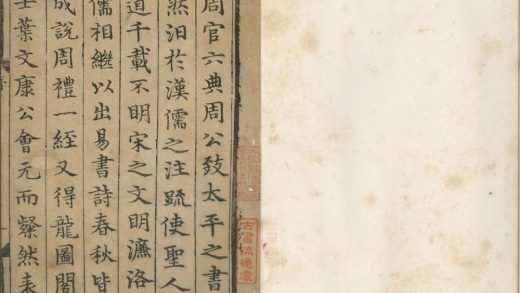 周官六典周公致太平之書
然汨於漢儒之注䟽使聖人
道千載不明宋之文明濂洛
儒相繼以出易書詩春秋皆
成說周禮一經又得龍圖閣
士葉文康公會元而粲然表
古書流通處